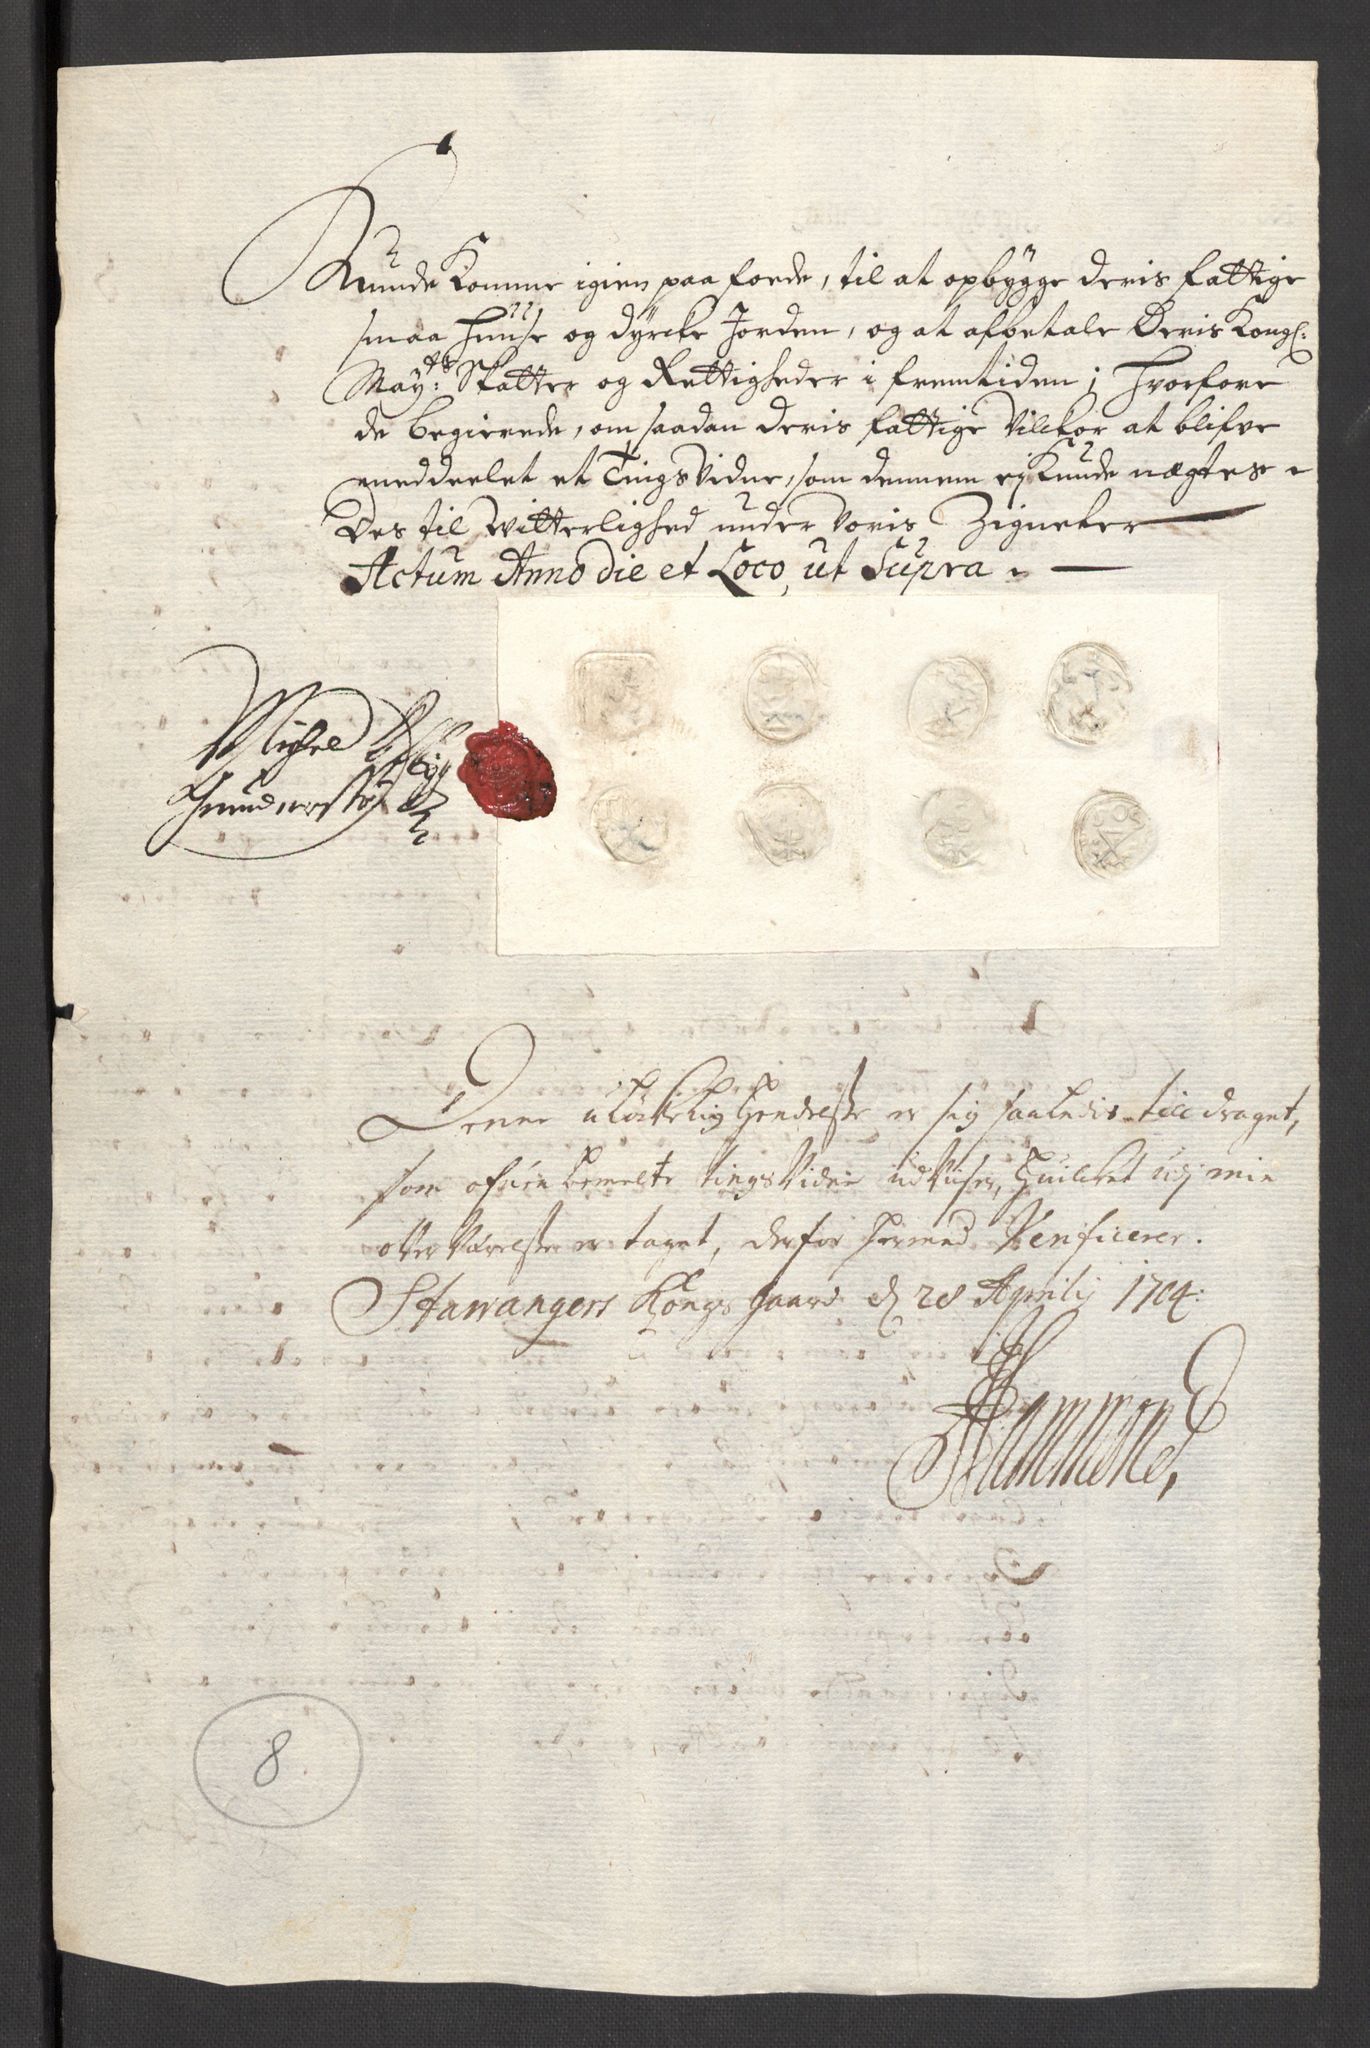 Kunde Komme igien paa foede, til at opbygge deris fattige
smaa Huuse og dyrcke Jorden, og at afbetale Deris Kongl:
May:ts Skatter og Rettigheder i fremtiden; Hvorfore
de begierede, om saadan deris fattige Vilckor at blifve
meddeelet et Tings Vidne, som dennem ej Kunde nægtes.
Des til Witterlighed under Voris Zigneter
Actum Anno die et Loco, ut Supra.
Michel
Denne uLÿkelig Hendelsse er sig saaledis till draget,
som ofuenbemelte tings Vidne udViser, Huilcket udj min
offverVærelsse er taget, derfor hermed Verificerer.
Stawangers Kongsgaard d 28 Aprilij 1704:
Hammond,
8